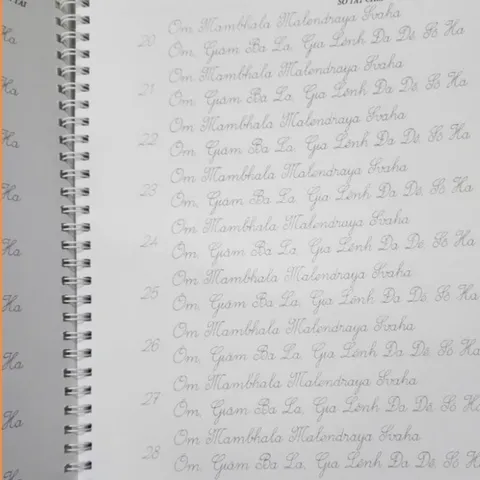 Ha
Ha
Ha
Ha
Ha
Ha
Ha
Om Mambhala Malendraya Svaha
20 Om, Giam Ba La, Gia Lênh Đa Dê, Sô Ha
Om Mambhala Malendraya Svaha
21 Om, Giam Ba La, Gia Lênh Đa Dê, Sô Ha
Om Mambhala Malendraya Svaha
22 Om, Giam Ba La, Gia Lênh Đa Dê, Sô Ha
Om Mambhala Malendraya Svaha
23 Om, Giam Ba La, Gia Lênh Đa Dê, Sô Ha
Om Mambhala Malendraya Svaha
24 Om, Giam Ba La, Gia Lênh Đa Dê, Sô Ha
Om Mambhala Malendraya Svaha
25 Om, Giam Ba La, Gia Lênh Đa Dê, Sô Ha
Om Mambhala Malendraya Svaha
26 Om, Giam Ba La, Gia Lênh Đa Dê, Sô Ha
Om Mambhala Malendraya Svaha
27 Om, Giam Ba La, Gia Lênh Đa Dê, Sô Ha
Om Mambhala Malendraya Svaha
28 Om, Giam Ba La, Gia Lênh Đa Dê, Sô Ha